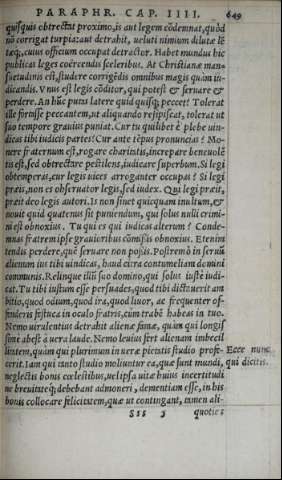 PARAPHR. CAP. IIII. 649
quiſquis obtrectat proximo, is aut legem cõdemnat, quòd
nõ corrigat turpia: aut detrahit, ueluti nimium dilutæ le
tæq;, cuius officium occupat detractor. Habet mundus hic
publicas leges coërcendis ſceleribus. At Chriſtianæ man=
ſuetudinis eſt, ſtudere corrigẽdis omnibus magis quàm iu=
dicandis. Vnus eſt legis cõditor, qui poteſt & ſeruare &
perdere. An hũc putas latere quid quiſq; peccet? Tolerat
ille fortaſſe peccantem, ut aliquando reſipiſcat, tolerat ut
ſuo tempore grauius puniat. Cur tu quilibet è plebe uin=
dicas tibi iudicis partes? Cur ante tẽpus pronuncias? Mo=
nere fratrem tuum eſt, rogare charitatis, increpare beneuolẽ
tis eſt, ſed obtrectare peſtilens, iudicare ſuperbum. Si legi
obtemperas, cur legis uices arroganter occupas? Si legi
præis, non es obſeruator legis, ſed iudex. Qui legi præit,
præit deo legis autori. Is non ſinet quicquam inultum, &
nouit quid quatenus ſit puniendum, qui ſolus nulli crimi=
ni eſt obnoxius. Tu qui es qui iudicas alterum? Conde=
mnas fratrem ipſe grauioribus cõmiſſis obnoxius. Etenim
tendis perdere, quẽ ſeruare non poſſis. Poſtremò in ſeruũ
alienum ius tibi uindicas, haud citra contumeliam domini
communis. Relinque illũ ſuo domino, qui ſolus iuſtè iudi=
cat. Tu tibi iuſtum eſſe perſuades, quod tibi dictauerit am
bitio, quod odium, quod ira, quod liuor, ac frequenter of=
fenderis feſtuca in oculo fratris, cum trabẽ habeas in tuo.
Nemo uirulentius detrahit alienæ famæ, quàm qui longiſ
ſimè abeſt à uera laude. Nemo leuius fert alienam imbecil
litatem, quàm qui plurimum in uera pietatis ſtudio profe=
cerit. Iam qui tanto ſtudio moliuntur ea, quæ ſunt mundi,
neglectis bonis cœleſtibus, uel ipſa uitæ huius incertitudi
ne breuitateq; debebant admoneri, dementiam eſſe, in his
bonis collocare felicitatem, quæ ut contingant, tamen ali=
Ecce nunc
qui dicitis.
SSS 3 quoties